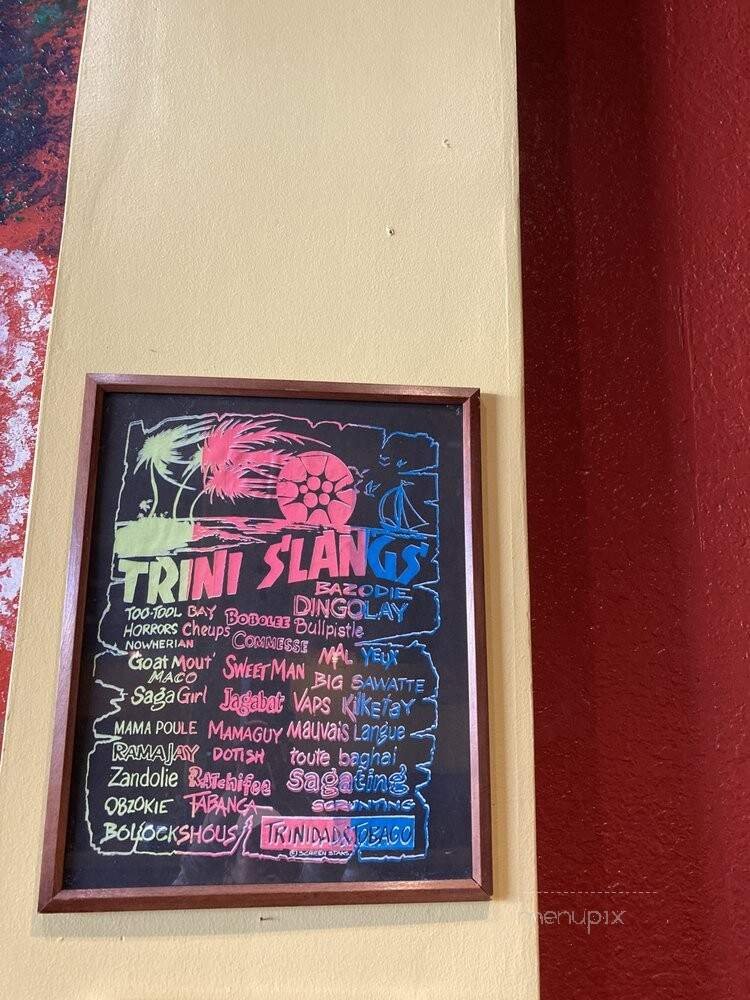 TRINI SLANGS
BAZODIE
TOO-TOOL BAY BOBOLEE DINGOLAY
HORRORS Cheups Bullpistle
NOWHERIAN COMMESSE
Goat Mout' SWEET MAN MAL YEUX
MACO BIG SAWATTE
Saga Girl Jagabat VAPS KilKeTay
MAMA POULE MAMAGUY Mauvais Langue
RAMAJAY DOTISH toute baghai
Zandolie RATchifee sagating
OBZOKIE TABANGA SCRUNTING
BOLLOCKSHOUS TRINIDAD & TOBAGO
© SCREEN STARS
menupix